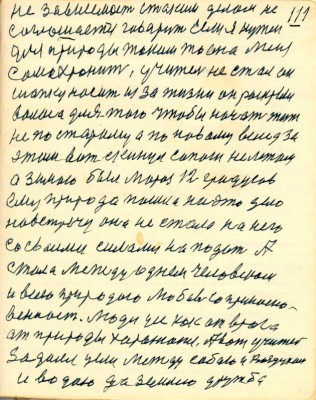 111
не зависимост с таким делом не
соглошается говарит если я нужен
для природы таким то она меня
сама хронит, учител не стал он
шапку носит из за жизни он раскрыл
волоса для того чтобы начат жит
не по старому а по новому вслед за
этим вот скинул сапоги не летом
а зимою был мароз 12 градусов
ему природа пошла на это дело
навстречу она не стала на него
со своими силами нападат А
стала между одним человеком
и всею природаю любов соприкосно-
венност. Люди ее как от врага
ат природы хароняют, А вот учител
задался цели между сабою и воздухом
и водою да землею дружба